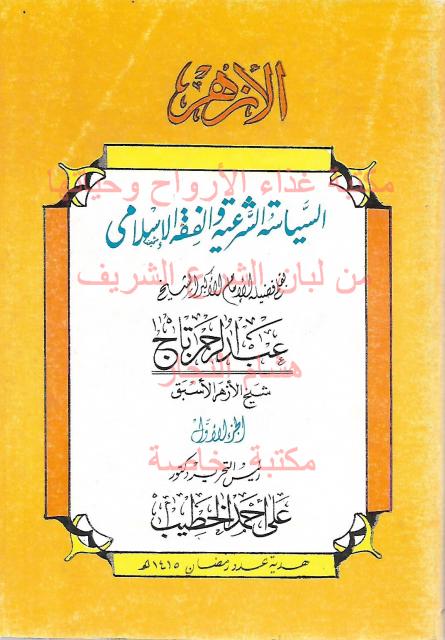 الأزهر
مكتبة غذاء الأرواح وحياتها
السياسة الشرعية والفقه الإسلامى
من لبان الشرع الشريف
بقلم فضيلة الإمام الأكبر الشيخ
عبد الرحمن تاج
هشام النجار
شيخ الأزهر الأسبق
الجزء الأول
مكتبة خاصة
رئيس التحرير دكتور
على أحمد الخطيب
هدية عدد رمضان ١٤١٥هـ